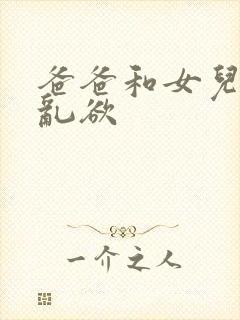 爸爸和女兒
亂欲
一介之人